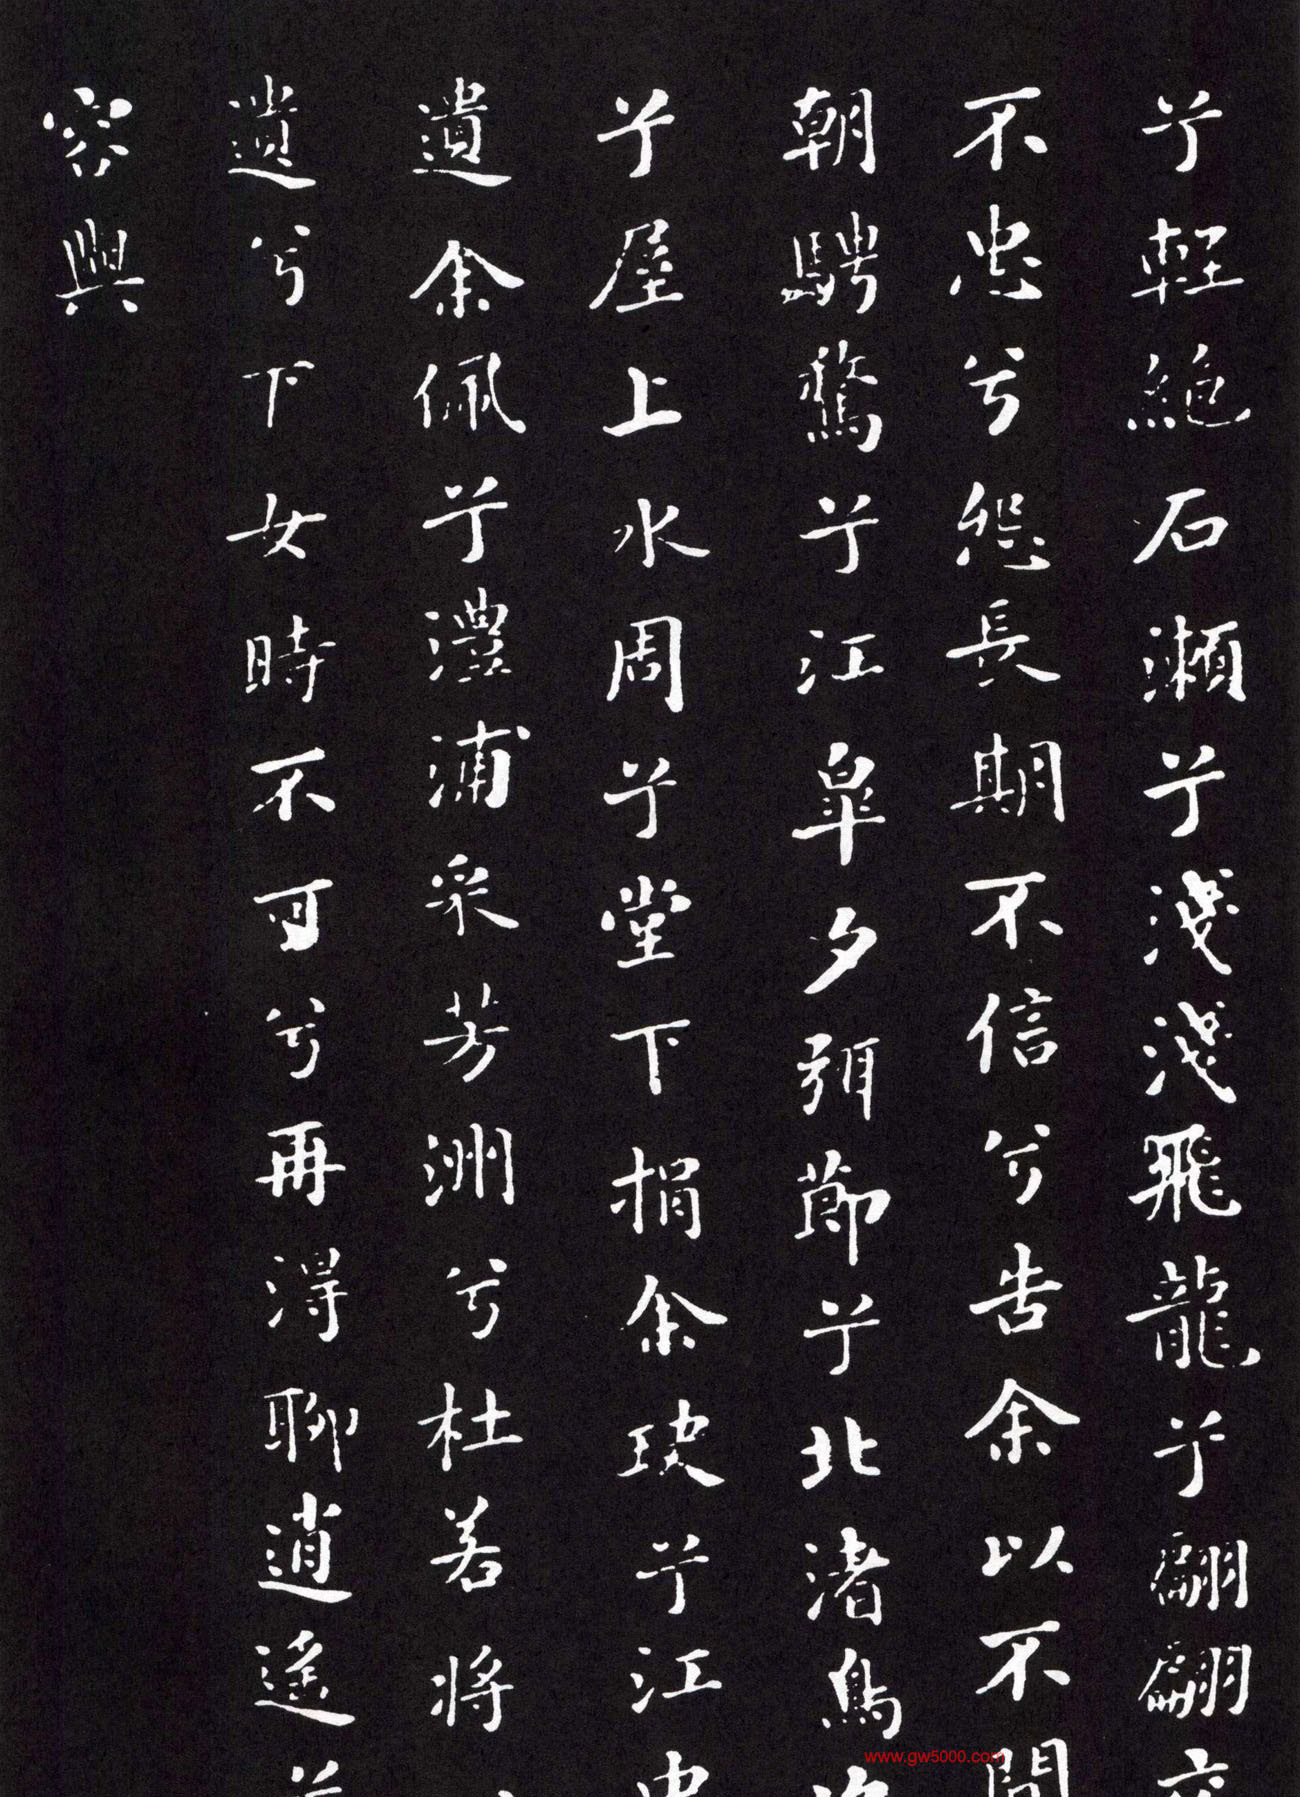 兮輕絕石瀨兮淺淺飛龍兮翩翩交
不忠兮怨長期不信兮告余以不閒
朝騁騖兮江皋夕弭節兮北渚鳥次
兮屋上水周兮堂下捐余玦兮江中
遺余佩兮澧浦采芳洲兮杜若將
遺兮下女時不可兮再得聊逍遙兮
容與
www.gw5000.com